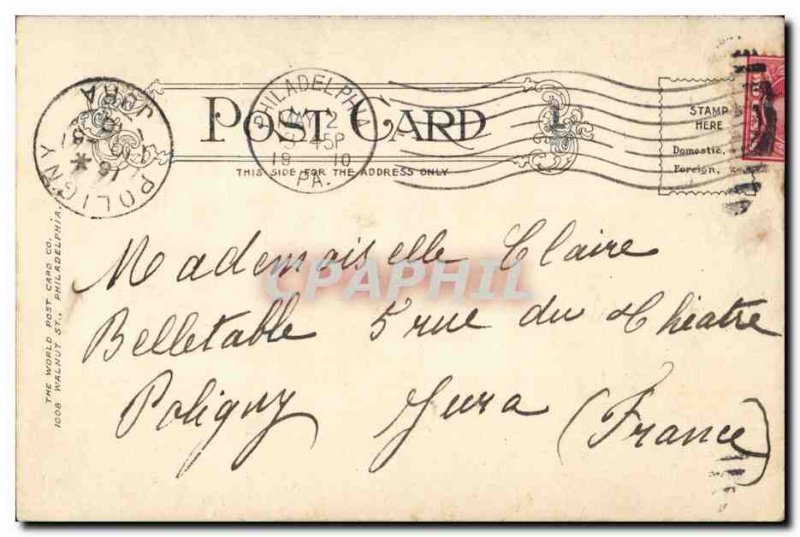 POST CARD
THIS SIDE FOR THE ADDRESS ONLY
PHILADELPHIA
2
45P
19 10
PA.
POLIGNY
JURA
16
STAMP
HERE
Domestic.
Foreign.
THE WORLD POST CARD CO.
1008 WALNUT ST., PHILADELPHIA.
CPAPHIL
Mademoiselle Claire
Belletable 5 rue du théatre
Poligny Jura (France)